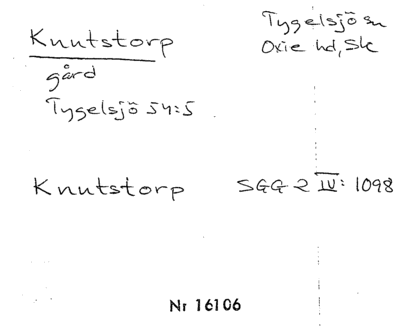 Knutstorp
Tygelsjö sn
Oxie hd, Sk
gård
Tygelsjö 54:5
Knutstorp SGG 2 IV: 1098
Nr 16106